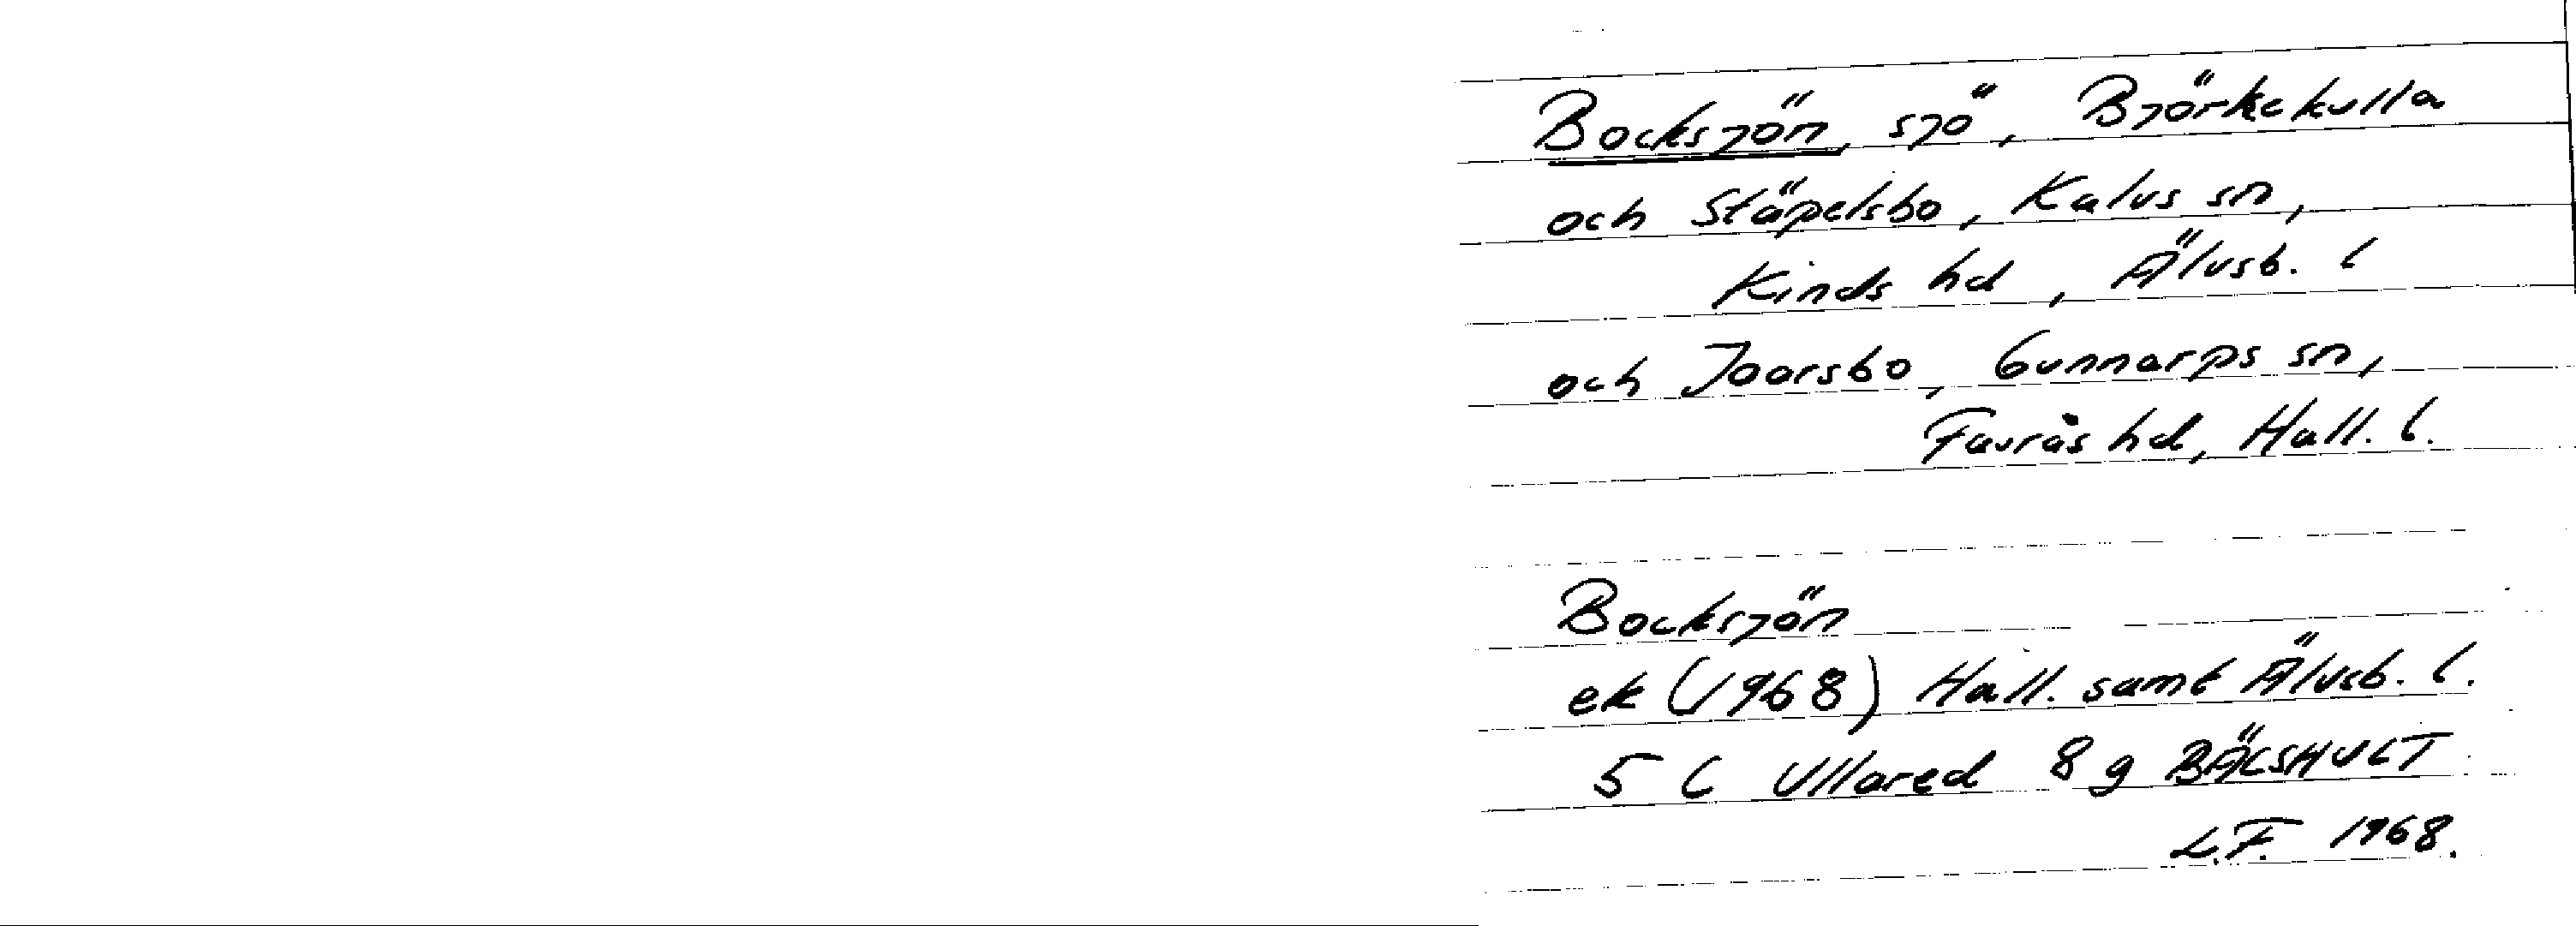 Bocksjön, sjö, Björkekulla
och Stäpelsbo, Kalvs sn,
Kinds hd, Älvsb. l
och Joarsbo, Gunnarps sn,
Faurås hd, Hall. l.
Bocksjön
ek (1968) Hall. samt Älvsb. l.
5 C Ullared 8 g BÄCSHULT
L.F. 1968.